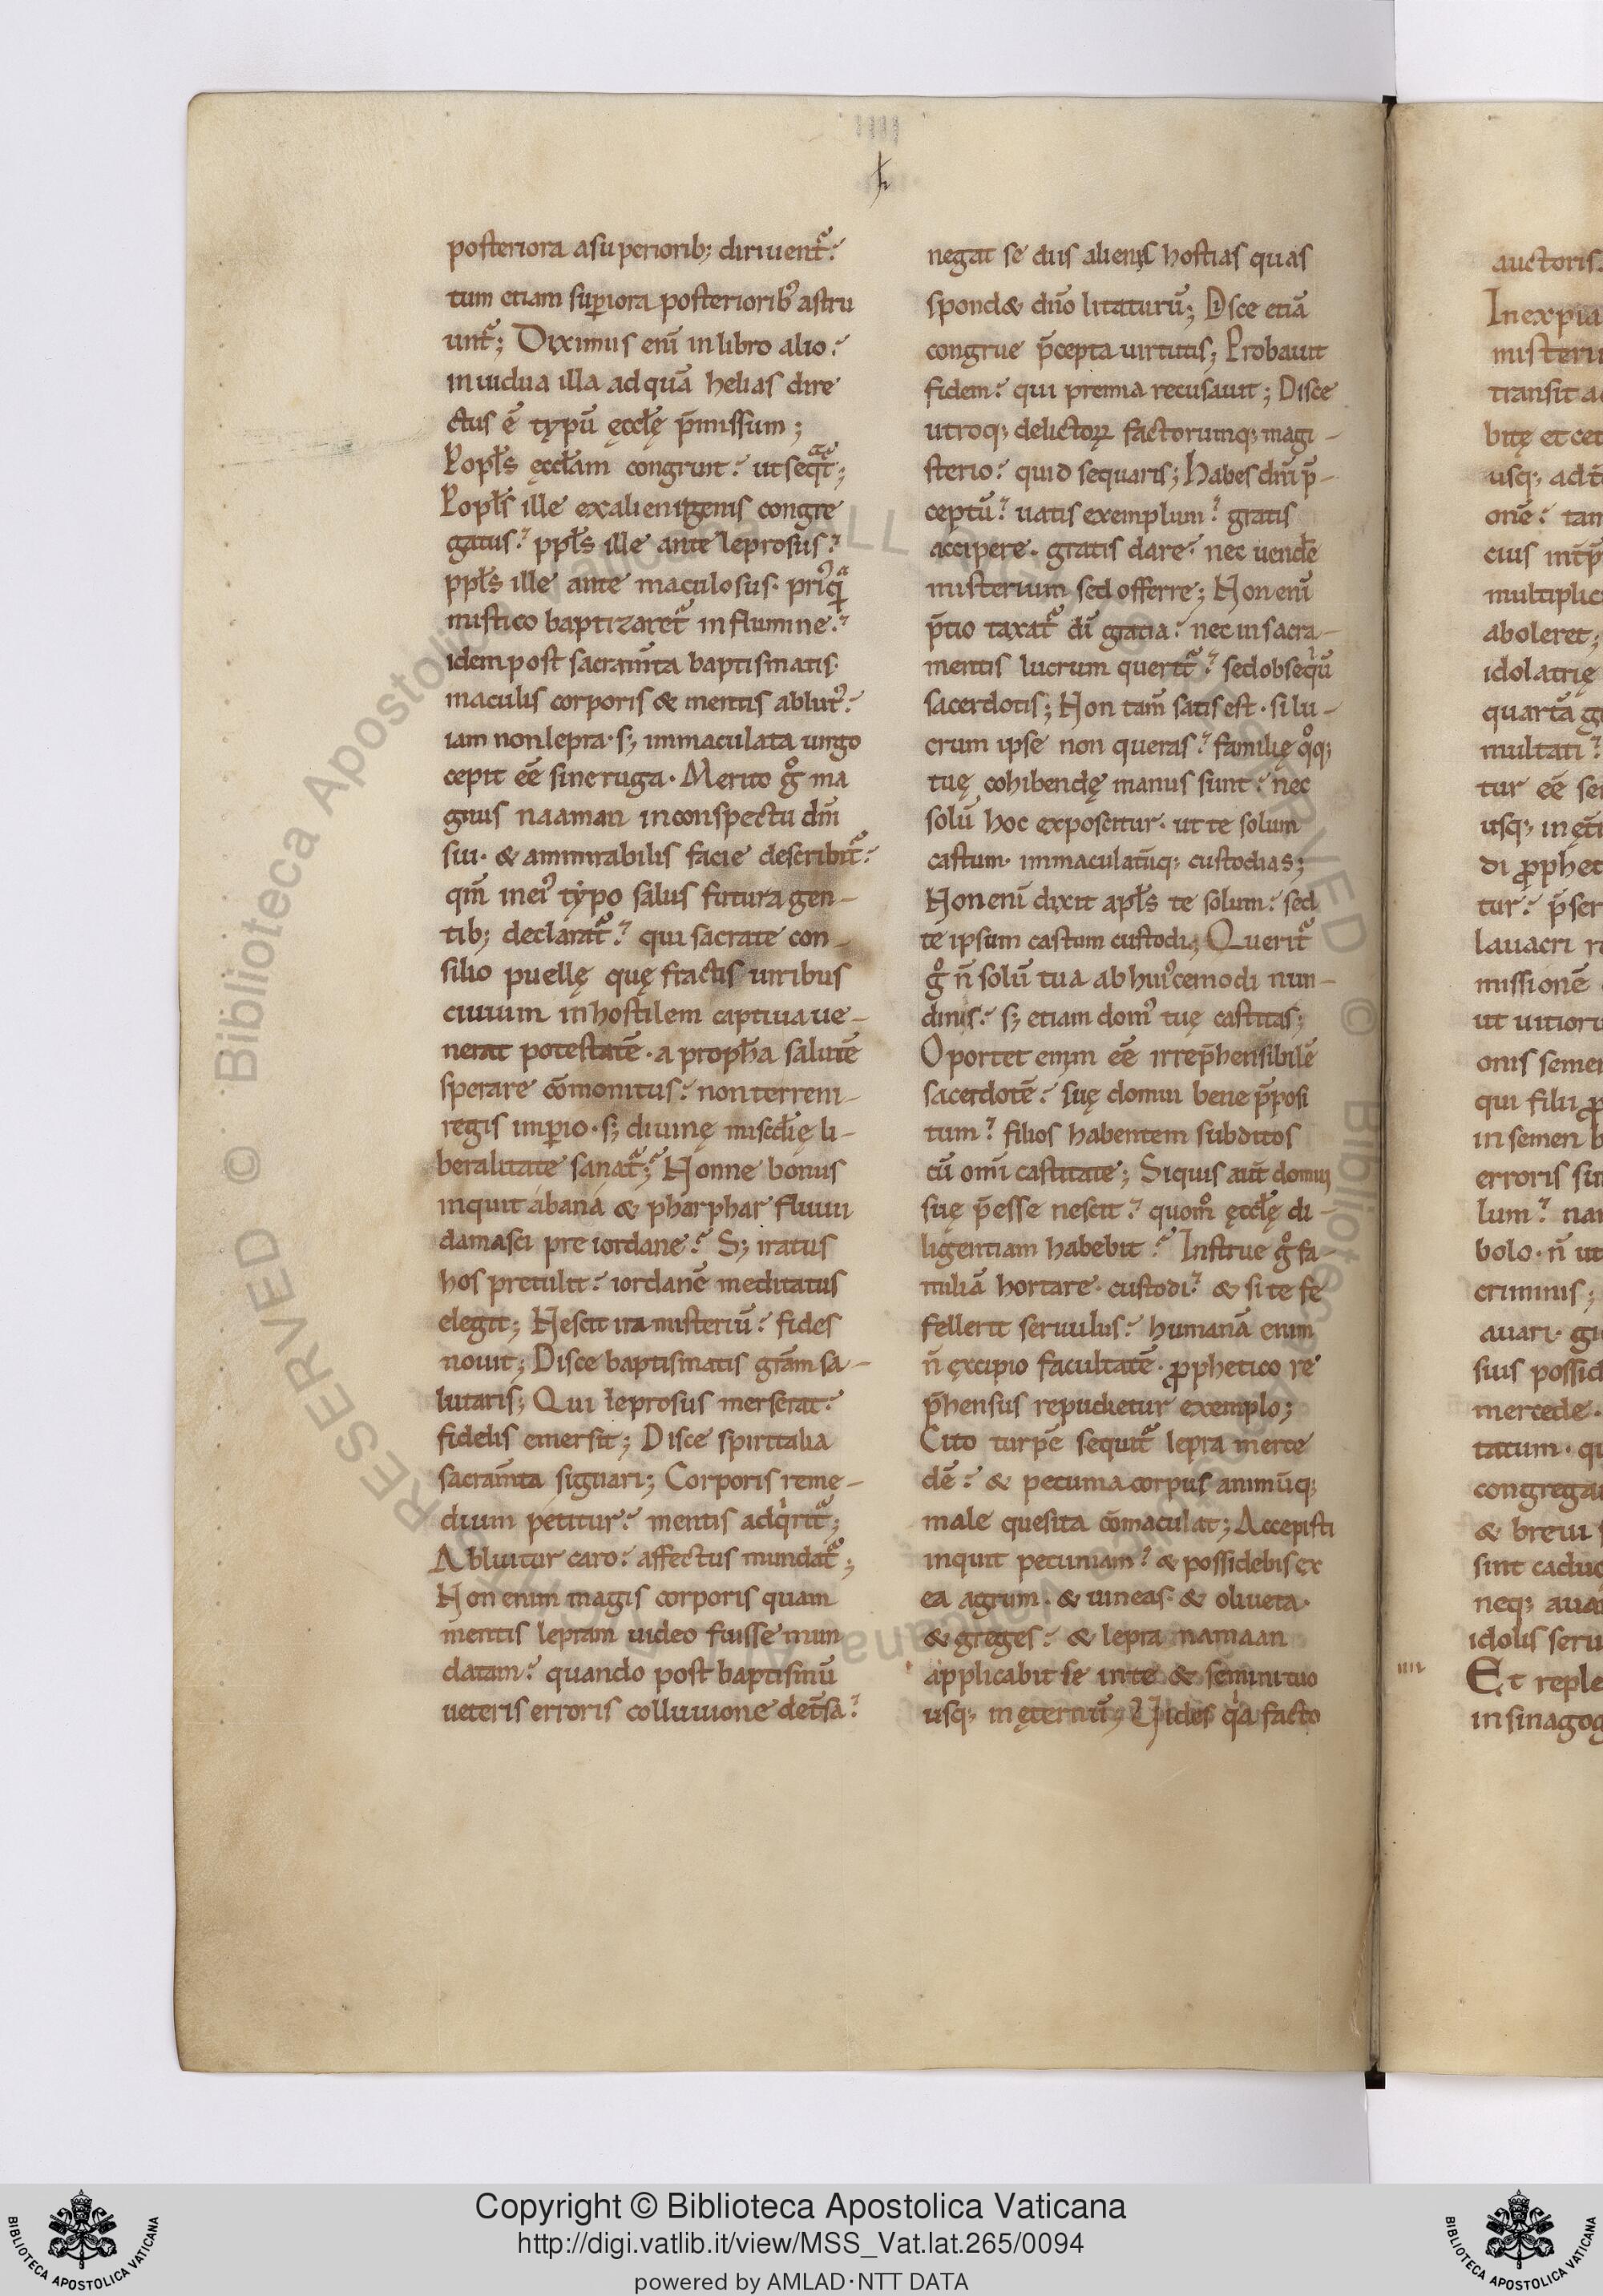 posteriora a superiorib; diriuent᷑.
tum etiam sup̲iora posteriorib᾽ astru
unt᷑; Diximus eni͂ in libro alio.
in uidua illa ad quā helias dire
ctus ē typū ęccłę p̄missum;
Popłs ęccłam congruit. ut seqt᷑;
Popłs ille ex alienigenis congre
gatus. ppłs ille ante leprosus.
ppłs ille ante maculosus. pri᾽qͣ
mistico baptizaret᷑ in flumine.
idem post sacram̄ta baptismatis.
maculis corporis & mentis ablut᾽.
iam non lepra. s; immaculata uirgo
cepit ēē sine ruga. Merito gͦ ma
gnus naaman in conspectu dn̄i
sui. & ammirabilis facie describit᷑.
qm̄ in ei᾽ typo salus futura gen-
tib; declarat᷑. qui sacratę con-
silio puellę quę fractis uiribus
ciuium in hostilem captiua ue-
nerat potestatē. a propħa salutē
sperare cōmonitus. non terreni-
regis imp̲io. s; diuinę misc̄dię li-
beralitate sanat᷑; Nonne bonus
inquit abana & pharphar fluuii
damasci pre iordane. S; iratus
hos pretulit. iordanē meditatus
elegit; Nescit ira misteriū. fides
nouit; Disce baptismatis gr̄am sa-
lutaris; Qui leprosus merserat.
fidelis emersit; Disce spiritalia
sacram̄ta signari; Corporis reme-
dium petitur. mentis adqͥrit᷑;
Abluitur caro. affectus mundat᷑;
Non enim magis corporis quam
mentis lepram uideo fuisse mun
datam. quando post baptismū
ueteris erroris colluuione det̄sa.
negat se diis alienis hostias quas
spond& dn̄o litaturū; Disce etiā
congrue p̄cepta uirtutis; Probauit
fidem. qui premia recusauit; Disce
utroq; delictoꝝ factorumq; magi-
sterio. quid sequaris; Habes dn̄i p̄-
ceptū. uatis exemplum. gratis
accipere. gratis dare. nec uendē
misterium sed offerre; Non eni͂
p̄tio taxat᷑ di̅ gratia. nec in sacra-
mentis lucrum querit᷑. sed obseqͥū
sacerdotis; Non tam̄ satis est. si lu-
crum ipse non queras. familię qͦq;
tuę cohibendę manus sunt. nec
solū hoc exposcitur. ut te solum
castum. immaculatūq; custodias;
Non eni͂ dixit apłs te solum. sed
te ipsum castum custodi; Querit᷑
gͦ n̄ solū tua ab hui᾽cemodi nun-
dinis. s; etiam dom᾽ tuę castitas;
Oportet enim ēē irrep̄hensibilē
sacerdotē. suę domui bene p̄posi
tum. filios habentem subditos
cū omi͂ castitate; Siquis aut̄ domui
suę p̄esse nescit. quom̊ ęccłę di-
ligentiam habebit. Instrue gͦ fa-
miliā hortare. custodi. & si te fe
fellerit seruulus. humanā enim
n̄ excipio facultatē. ꝓphetico re
p̄hensus repudietur exemplo;
Cito turpē sequit᷑ lepra merce
dē. & pecunia corpus animūq;
male quesita cōmaculat; Accepisti
inquit pecuniam. & possidebis ex
ea agrum. & uineas. & oliueta.
& greges. & lepra namaan
applicabit se in te & semini tuo
usq; in ęternū; Uides qͥa facto
auctoris.
Inexpia
misteriu
transit a
bitę et cet
usq; ad
onē. tam
cius
multiplic
aboleret;
idolatrię
quartā g
multati.
tur ēē se
usq; in
di ꝓphet
tur. p̄ser
lauacri r
missionē
ut uitioru
onis seme
qui filii ꝓ
in semen b
erroris sin
lum. nam
bolo. n̄ ut
criminis;
auari. gi
sius possid
mercede.
tatum. qu
congrega
& breui s
sint caduc
neq; auar
idolis seru
Et reple
in sinagog
Copyright © Biblioteca Apostolica Vaticana
http://digi.vatlib.it/view/MSS_Vat.lat.265/0094
powered by AMLAD·NTT DATA
BIBLIOTECA APOSTOLICA VATICANA
BIBLIOTECA APOSTOLICA VATICANA